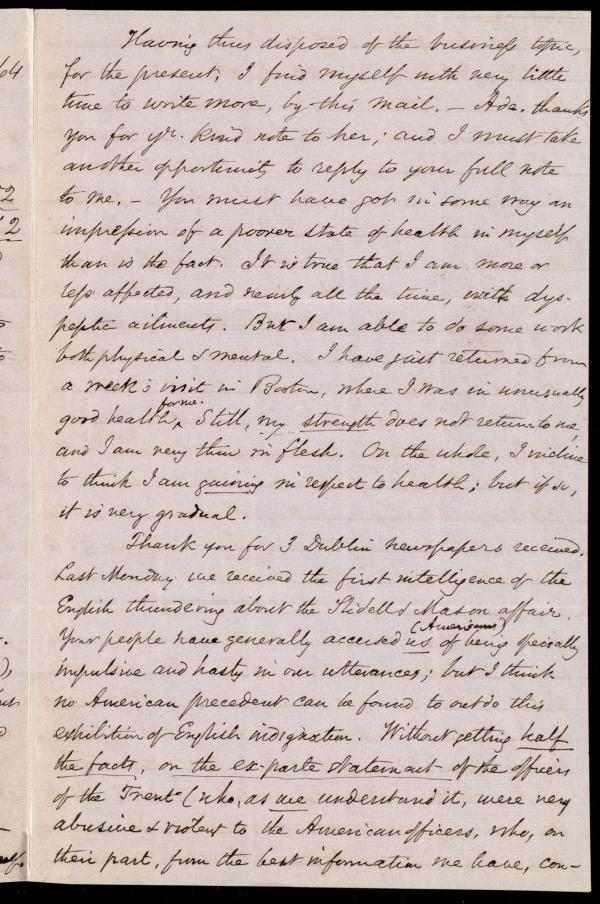 Having thus disposed of the business topic,
for the present, I find myself with very little
time to write more, by this mail. – Ada. thanks
you for yr. kind note to her; and I must take
another opportunity to reply to your full note
to me. – You must have got in some way an
impression of a poorer state of health in myself
than is the fact. It is true that I am more or
less affected, and nearly all the time, with dys-
peptic ailments. But I am able to do some work
both physical & mental. I have just returned from
a week's visit in Boston, where I was in unusually
good health, for me. Still, my strength does not return to me,
and I am very thin in flesh. On the whole, I incline
to think I am gaining in respect to health; but if so,
it is very gradual.
Thank you for 3 Dublin newspapers received.
Last Monday we received the first intelligence of the
English thundering about the Slidell & Mason affair.
Your people have generally accused us (Americans) of being specially
impulsive and hasty in our utterances; but I think
no American precedent can be found to outdo this
exhibition of English indignation. Without getting half
the facts, on the ex-parte statement of the officers
of the Trent (who, as we understand it, were very
abusive & violent to the American officers, who, on
their part, from the best information we have, con-
64
2
2